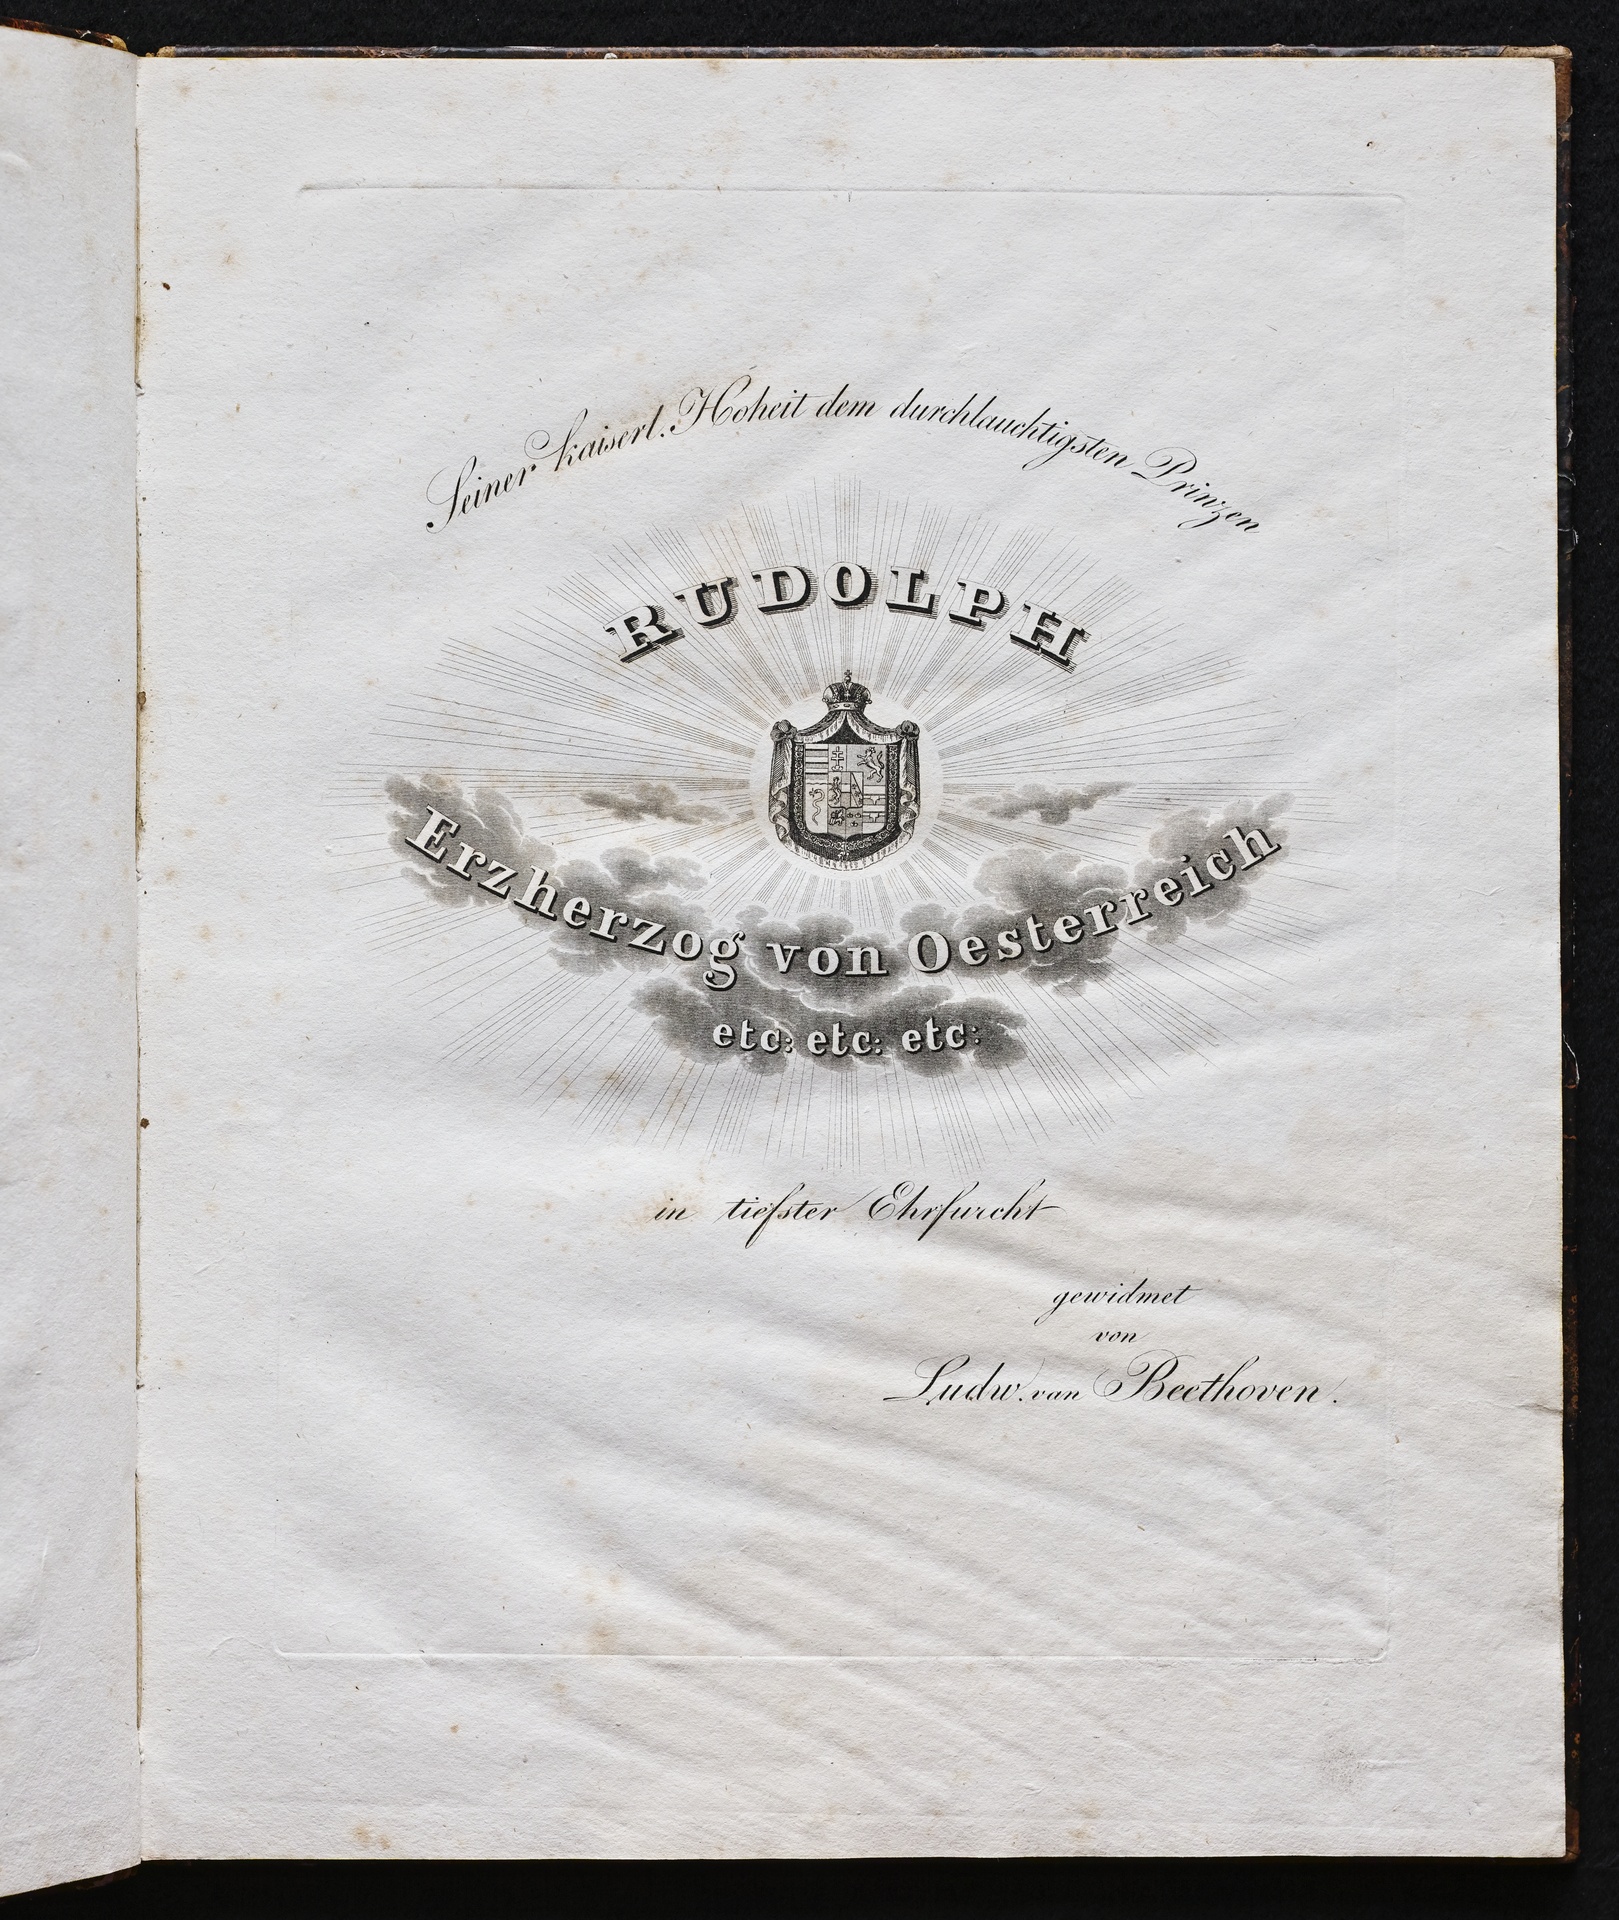 Seiner kaiserl. Hoheit dem durchlauchtigsten Prinzen
RUDOLPH
Erzherzog von Oesterreich
etc: etc: etc:
in tiefster Ehrfurcht
gewidmet
von
Ludw. van Beethoven.